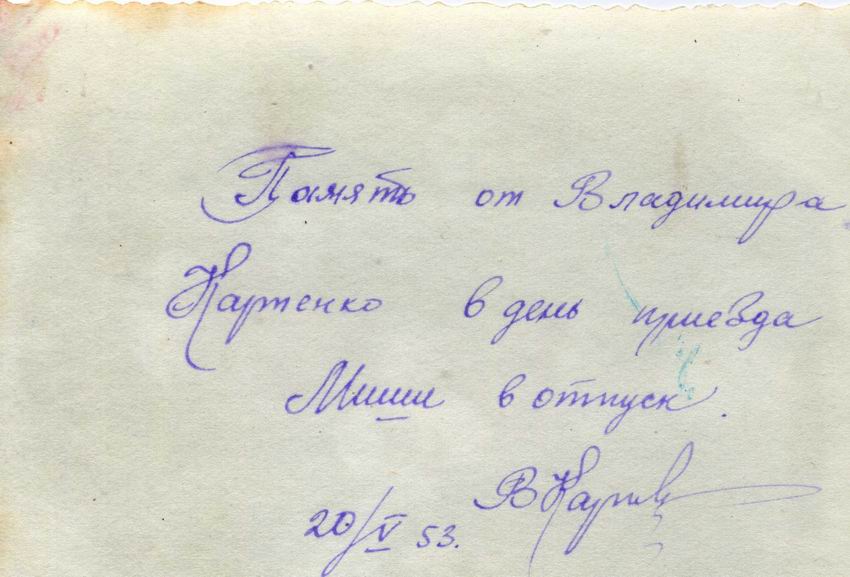 Память от Владимира
Картенко в день приезда
Миши в отпуск.
20/V 53.